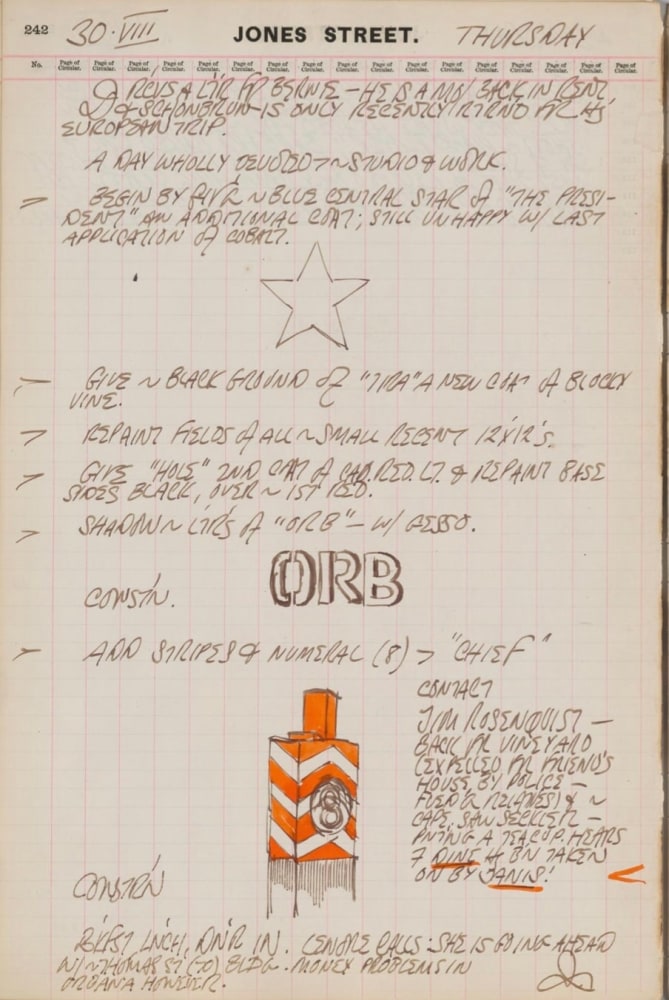 242 30·VIII JONES STREET. THURSDAY
No. Page of Circular. Page of Circular. Page of Circular. Page of Circular. Page of Circular. Page of Circular. Page of Circular. Page of Circular. Page of Circular. Page of Circular. Page of Circular. Page of Circular. Page of Circular. Page of Circular. Page of Circular. Page of Circular. Page of Circular.
A LTR FR BERNE — HE IS BACK IN
& SCHONBRUN IS ONLY RECENTLY RTRND FR HIS
EUROPEAN TRIP.
A DAY WHOLLY DEVOTED > ~ STUDIO & WORK.
> BEGIN BY ~ BLUE CENTRAL STAR of "THE PRESI-
DENT" AN ADDITIONAL COAT; STILL UNHAPPY W/ LAST
APPLICATION of COBALT.
> GIVE ~ BLACK GROUND of "TIRA" A NEW COAT of BLOCKX
VINE.
> REPAINT FIELDS of ALL ~ SMALL RECENT 12"X12"S.
> GIVE "HOLE" 2ND COAT of CAD. RED. LT. & REPAINT BASE
SIDES BLACK, OVER ~ 1ST RED.
> SHADOW ~ LTRS of "ORB" — W/ GESSO.
ORB
> ADD STRIPES & NUMERAL (8) > "CHIEF"
CONTACT
JIM ROSENQUIST —
BACK FR VINEYARD
(EXPELLED FR FRIEND'S
HOUSE, BY POLICE —
RELATIVES) & ~
CAPE, SAW SECKLER —
PNTING A TEACUP. HEARS
> DINE BN TAKEN
ON BY JANIS! <
8
BRKFST, LNCH, DNR IN. LENORE CALLS: SHE IS GOING AHEAD
W/ ~ THOMAS ST (70) BLDG. MONEY PROBLEMS IN
URBANA HOWEVER.